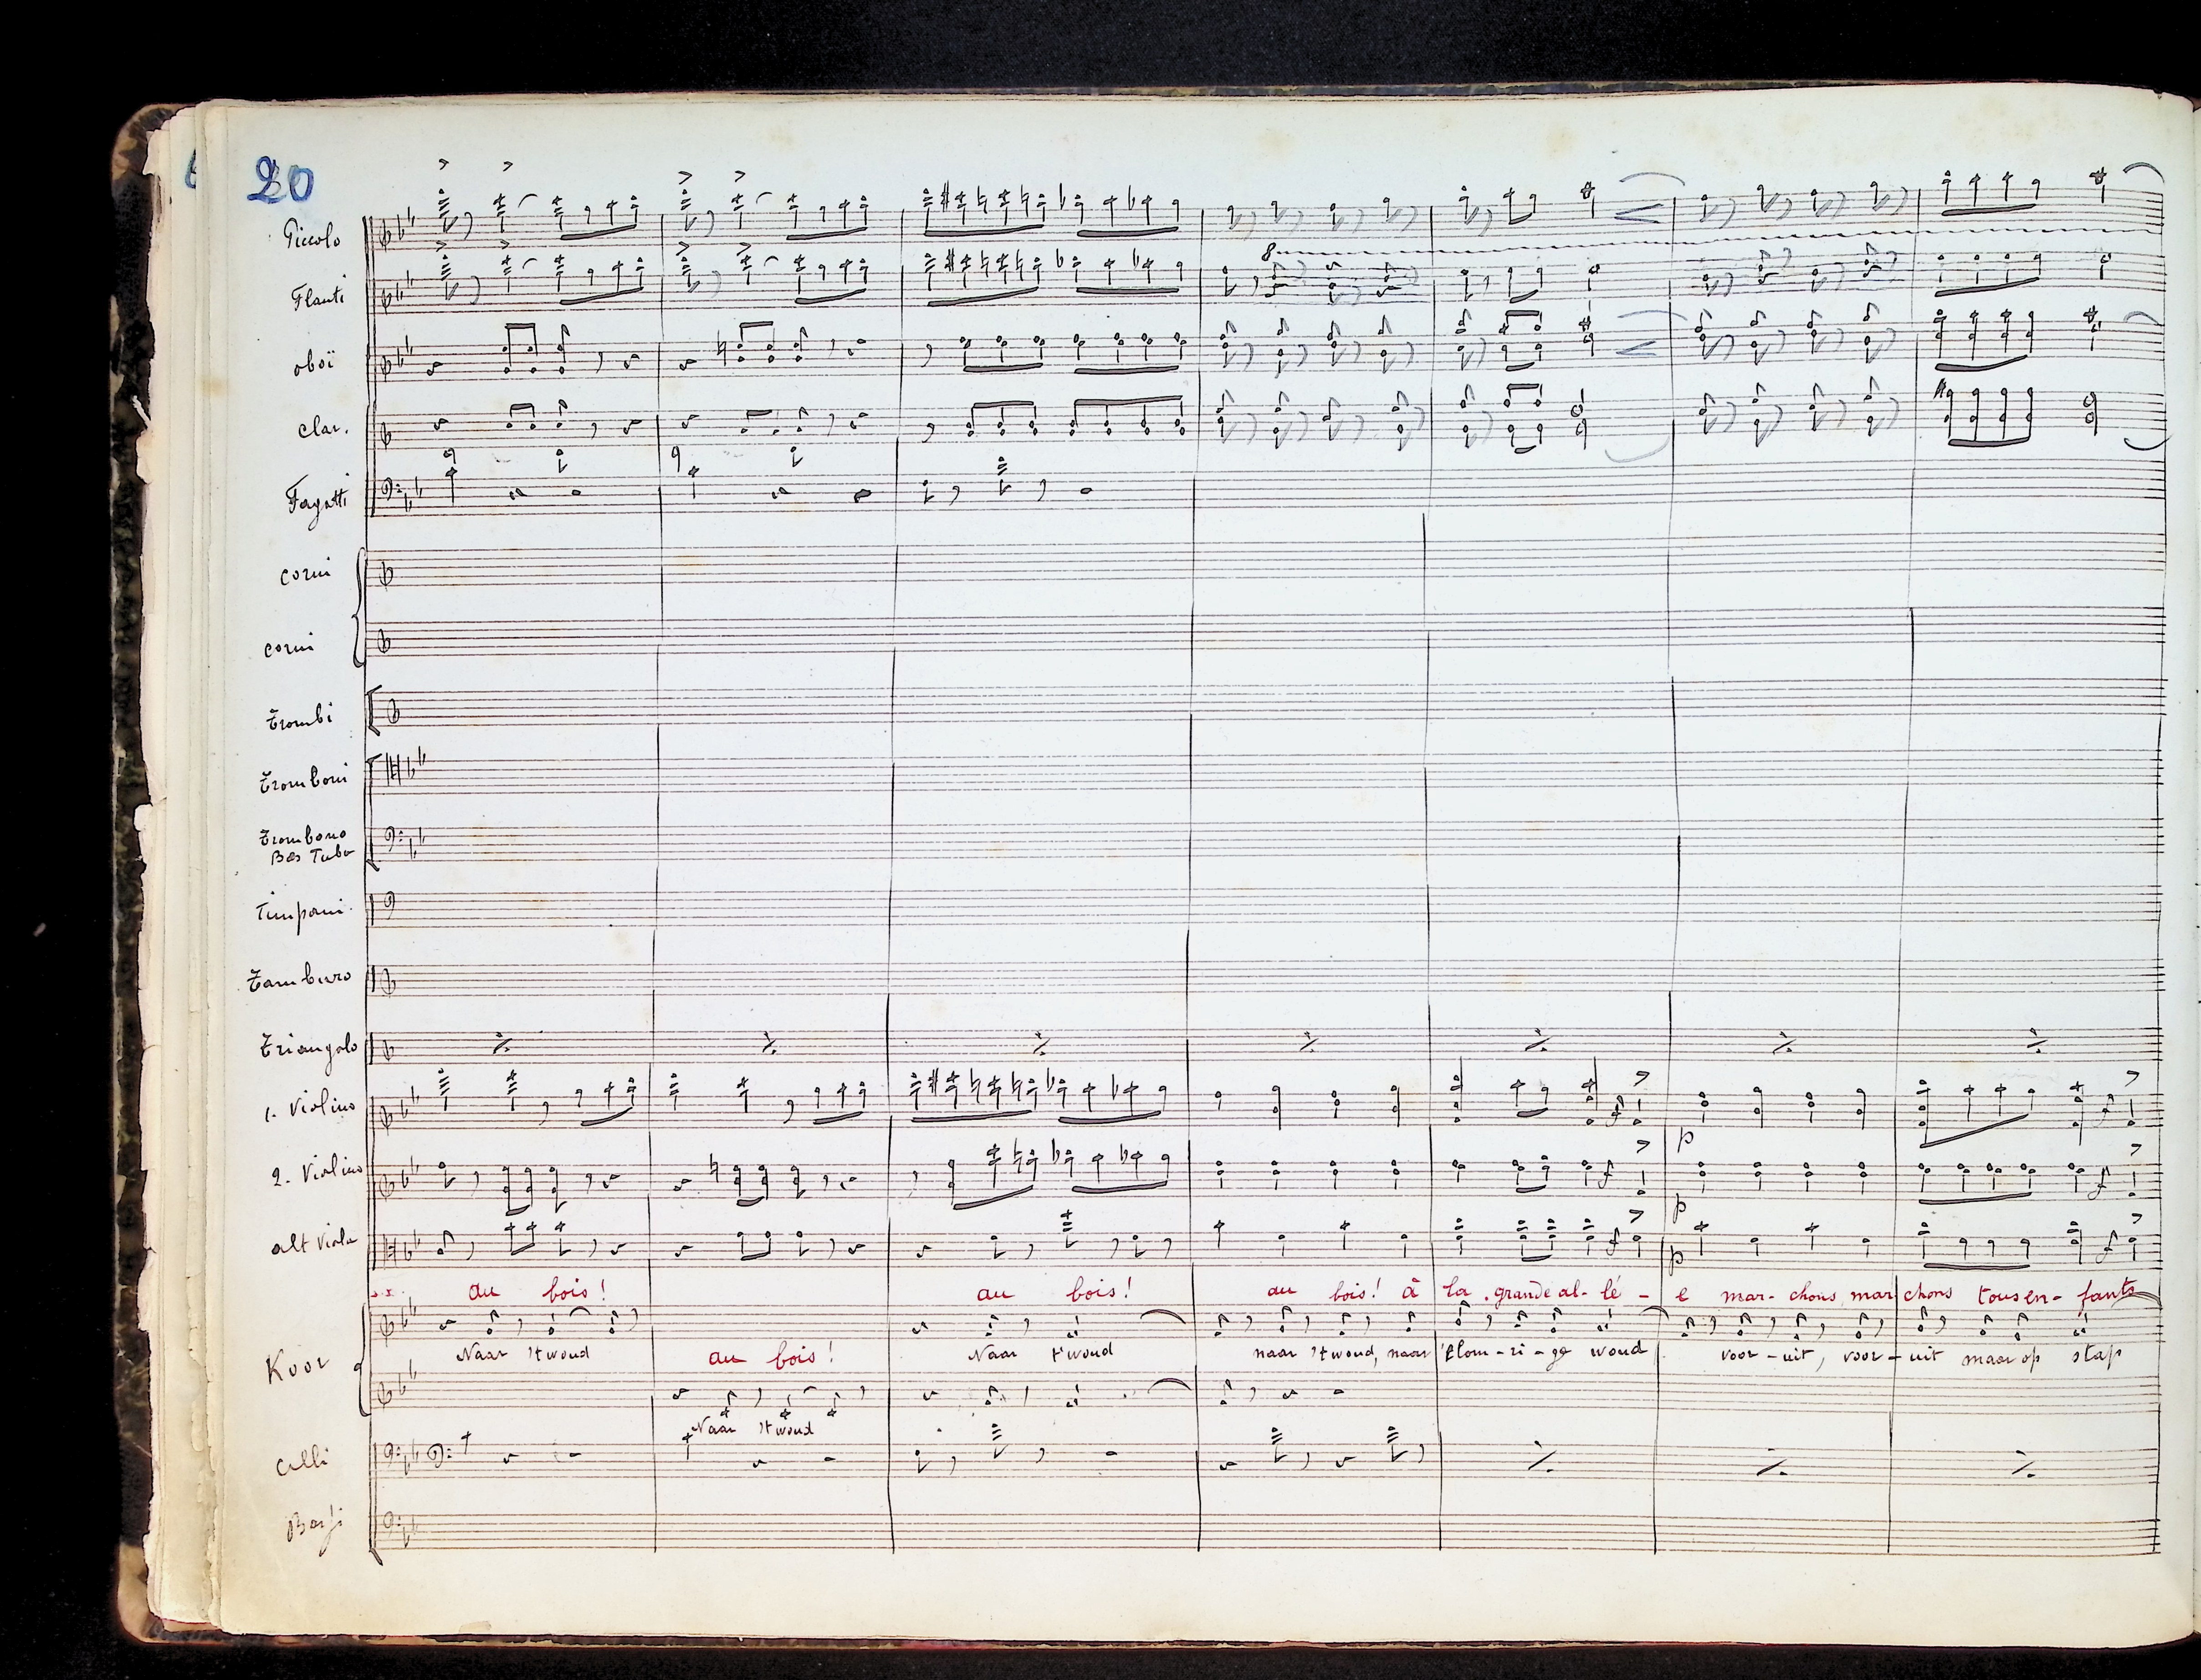 20
Piccolo
Flauti
8
oboï
Clar.
Fagotti
corni
corni
Trombi
Tromboni
Trombono
Bas Tuba
Timpani.
Tamburo
Triangolo
1. Violino
p
2. Violino
p
alt Viola
p
au bois! au bois! au bois! à la grande al-lé-e mar-chons, mar chons tous en-fants
Koor
Naar 't woud Naar t'woud naar 't woud, naar 't lom-ri-ge woud voor-uit, voor-uit maar op stap
au bois!
Naar 't woud
Celli
Bassi